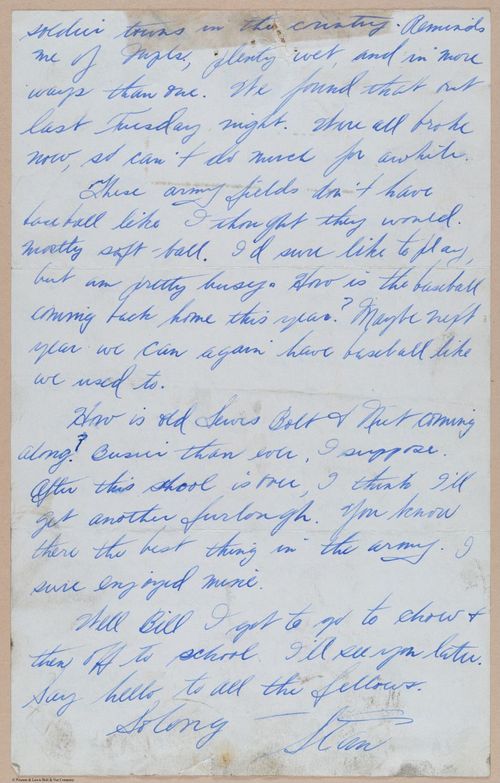 soldier towns in the country. Reminds
me of Mpls, plenty wet, and in more
ways than one. We found that out
last Tuesday night. Were all broke
now, so can't do much for awhile.
These army fields don't have
baseball like I thought they would.
Mostly soft-ball. I'd sure like to play,
but am pretty busy. How is the baseball
coming back home this year? Maybe next
year we can again have baseball like
we used to.
How is old Lewis Bolt & Nut coming
along? Busier than ever, I suppose.
After this shool is over, I think I'll
get another furlough. You know
there the best thing in the army. I
sure enjoyed mine.
Well Bill I got to go to chow &
then off to school. I'll see you later.
Say hello to all the fellows.
So long — Stan